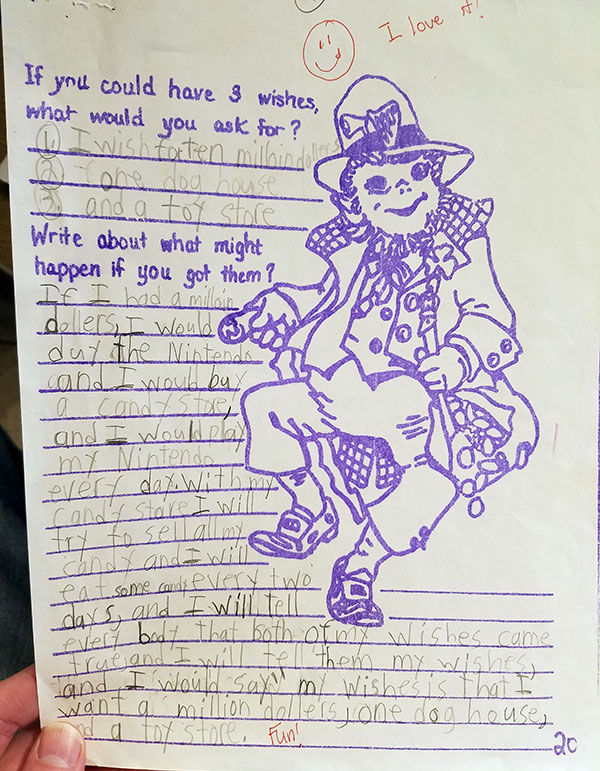 I love it!
If you could have 3 wishes,
what would you ask for?
① I wish for ten milloin dollers
② one dog house
③ and a toy store
Write about what might
happen if you got them?
If I had a milloin
dollers, I would
duy the Nintendo
and I would bu
a candy store,
and I would play
my Nintendo
every day. With my
candy store I will
try to sell all my
candy and I will
eat some candy every two
days, and I will tell
every body that both of my wishes came
true, and I will tell them my wishes,
and I would say" my wishes is that I
want a million dollers, one dog house,
and a toy store. Fun!
20